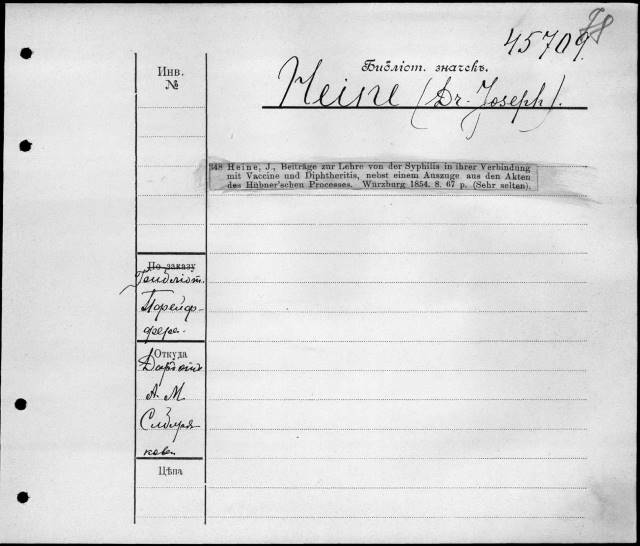 45709
Библіот. значекъ.
Heine (Dr. Joseph).
Инв.
№
348 Heine, J., Beiträge zur Lehre von der Syphilis in ihrer Verbindung
mit Vaccine und Diphtheritis, nebst einem Auszuge aus den Akten
des Hübner'schen Processes. Würzburg 1854. 8. 67 p. (Sehr selten).
По заказу
Откуда
А. М
Цѣна